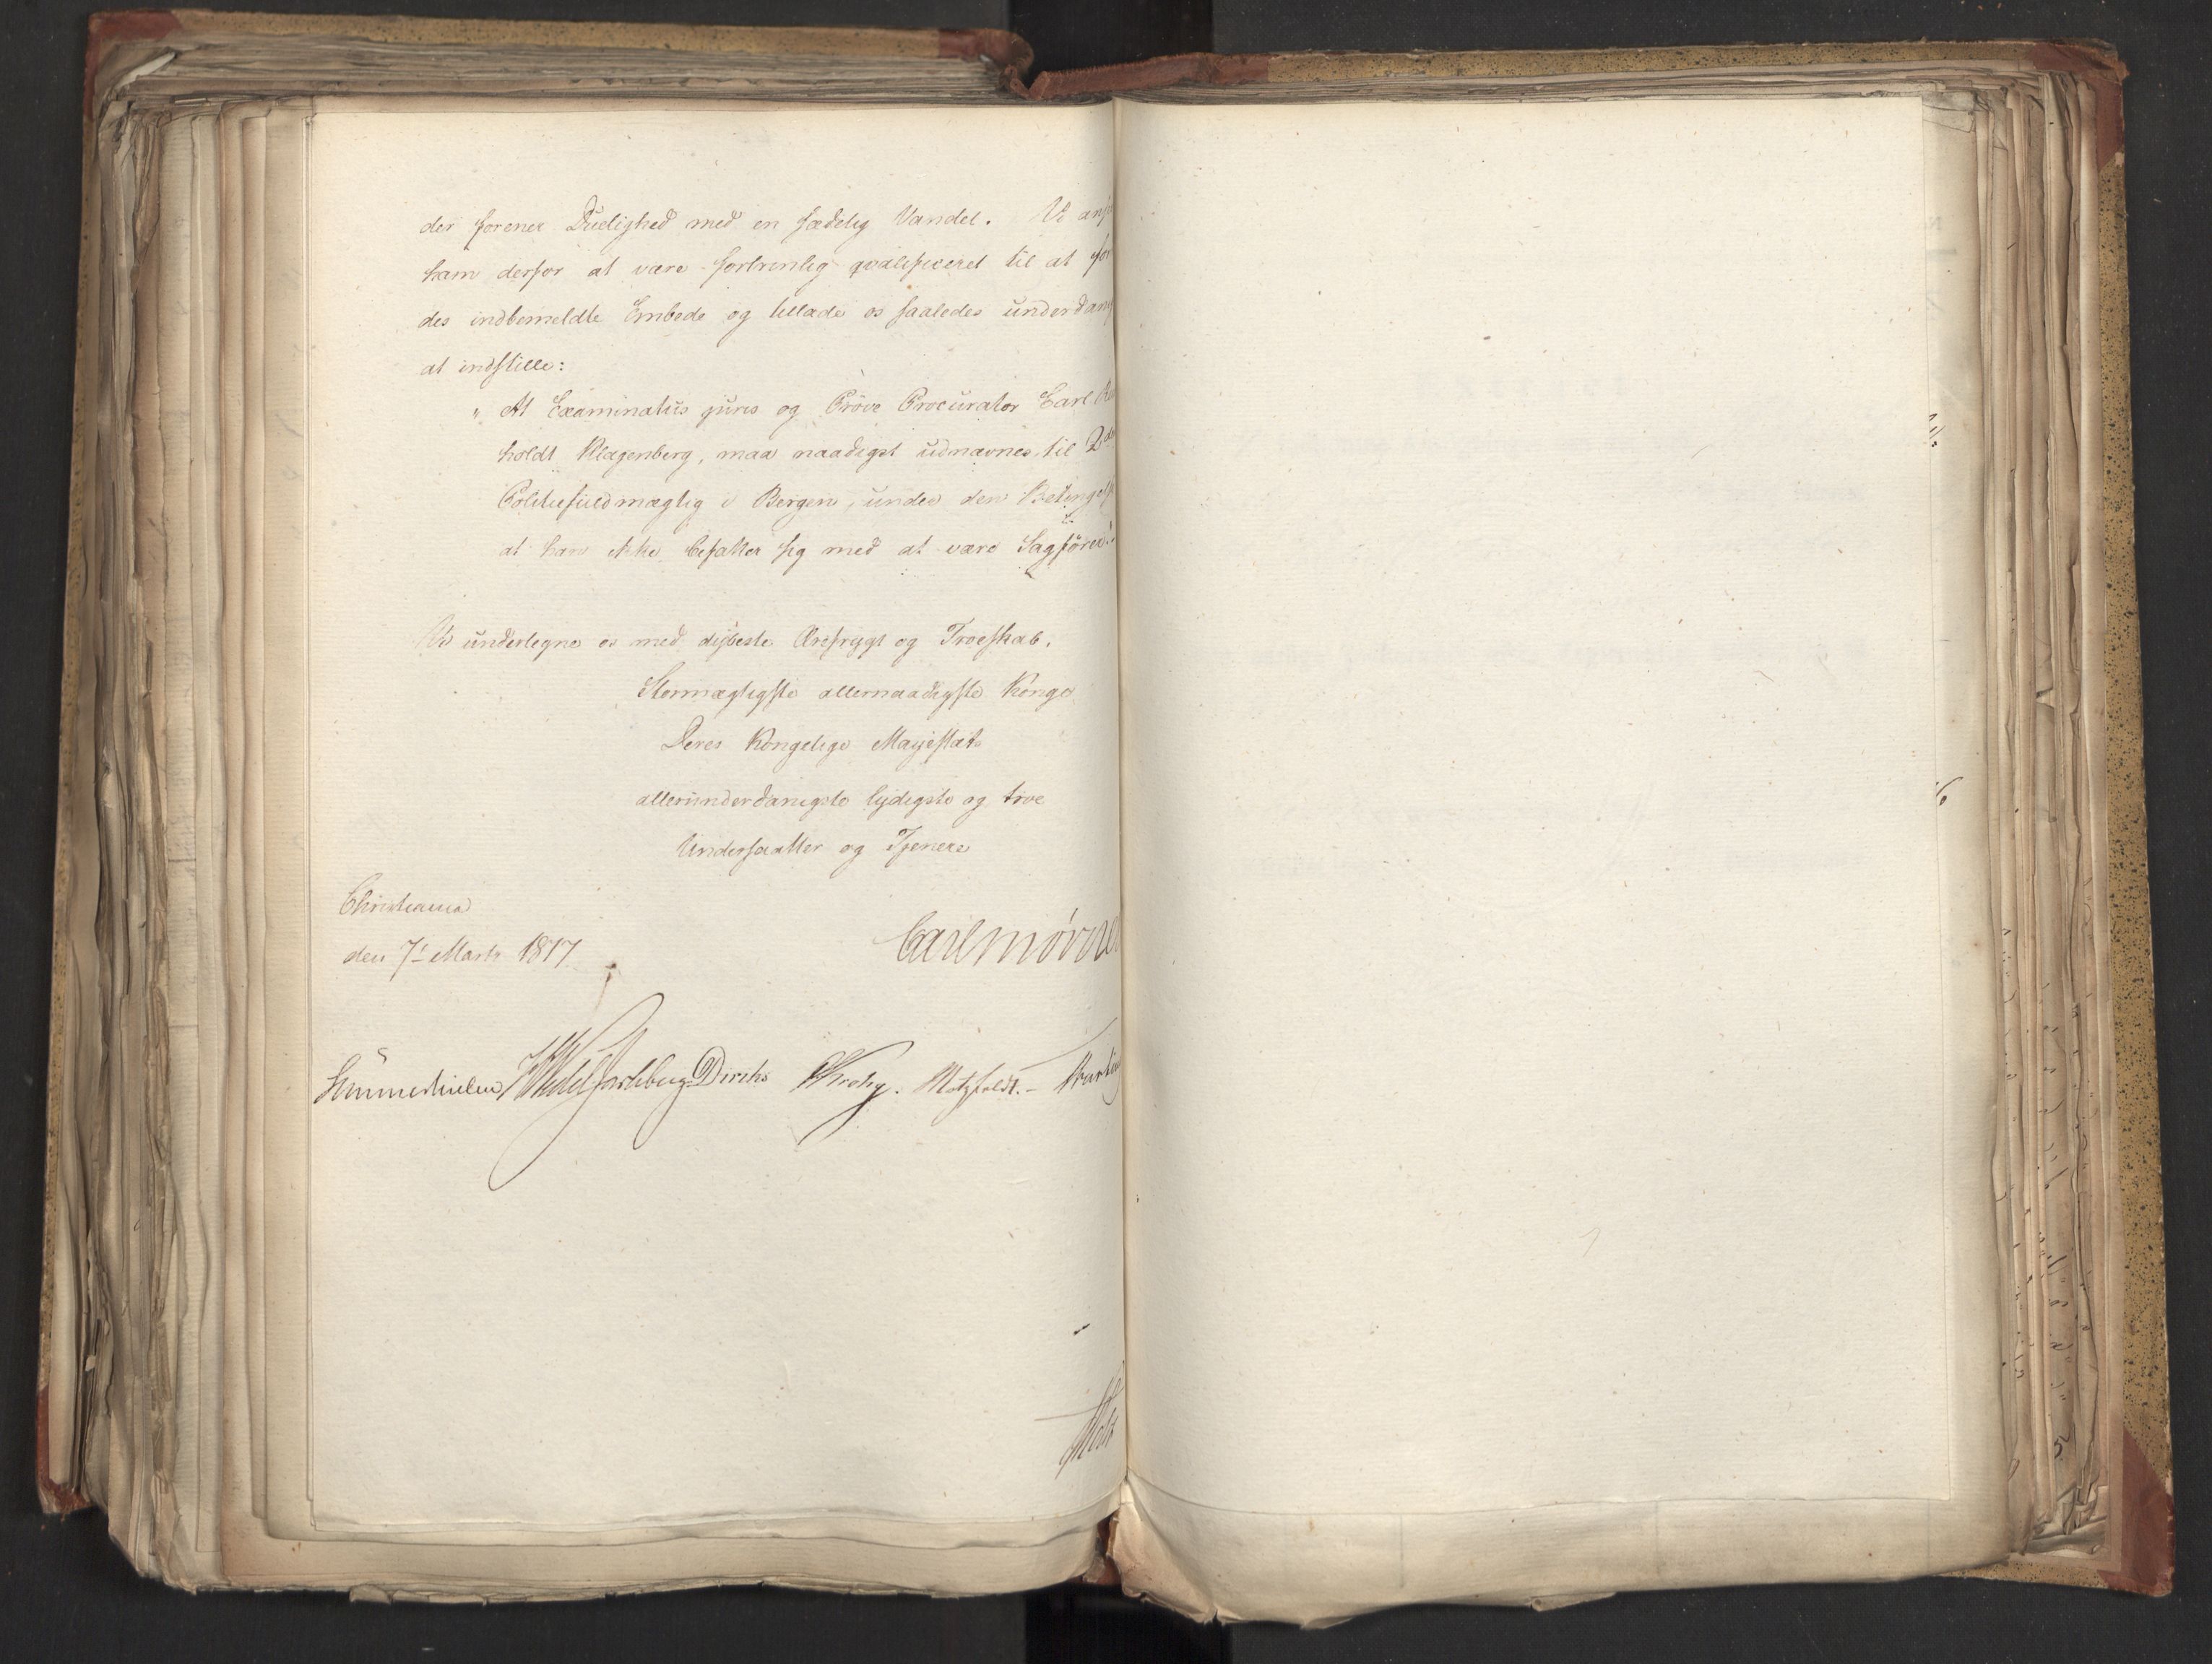 der forener Duelighed med en sædelig Vandel. Vi ans
ham derfor at være fortrinlig qvalificeret til at for
des indbemeldte Embede og tillade os saaledes underdan
at indstille:
" At Examinatus juris og Pröve Procurator Carl
holdt Klagenberg, maa naadigst udnævnes til 2den
Politiefuldmægtig i Bergen, under den Betingels
at han ikke befatter sig med at være Sagförer."
Vi undertegne os med dybeste Ærefrygt og Troeskab.
Stormægtigste allernaadigste Konge
Deres Kongelige Majestæts
allerunderdanigste lydigste og troe
Undersaatter og Tjenere
Christiania
den 7de Marts 1817
Carl Mörner
Sommerhielm Wedel Jarlsberg Diriks Krohg. Motzfeldt.
Holst